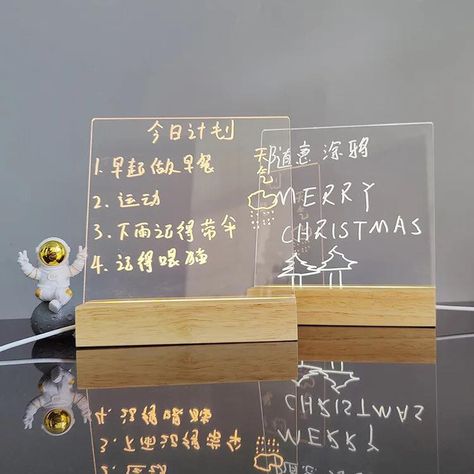 今日计划
1. 早起做早餐
2. 运动
3. 下雨记得带伞
4. 记得喂
天气
随意涂鸦
MERRY
CHRISTMAS